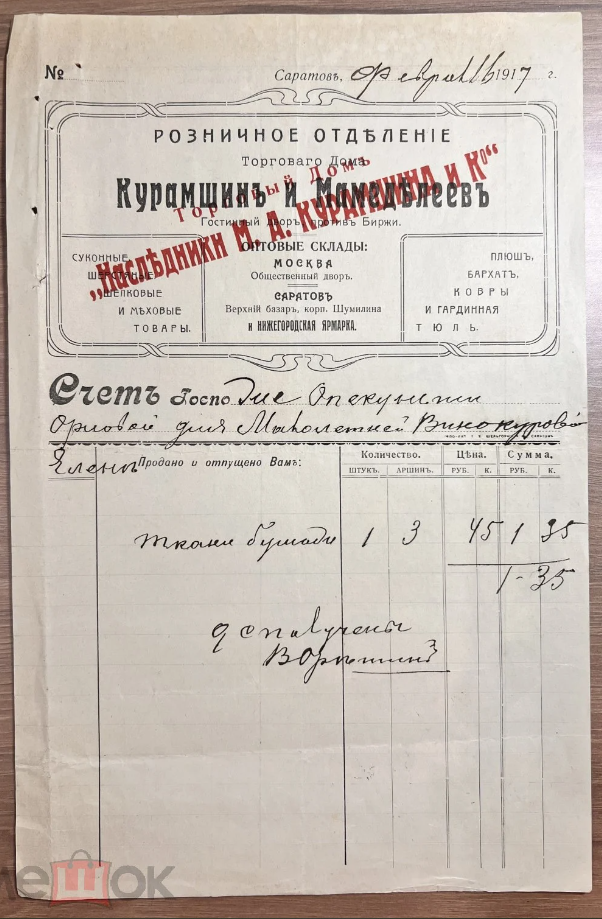 №
Саратовъ, Февраля 16 1917 г.
РОЗНИЧНОЕ ОТДѢЛЕНІЕ
Торговаго Дома
Курамшинъ и Мамедѣлеевъ
Торговый Домъ
„Наслѣдники М. А. КУРАМШИНА и Ко“
Гостиный дворъ, противъ Биржи.
СУКОННЫЕ
ШЕРСТЯНЫЕ
ШЕЛКОВЫЕ
И МѢХОВЫЕ
ТОВАРЫ.
ОПТОВЫЕ СКЛАДЫ:
МОСКВА
Общественный дворъ.
САРАТОВЪ
Верхній базаръ, корп. Шумилина
и НИЖЕГОРОДСКАЯ ЯРМАРКА.
ПЛЮШЪ,
БАРХАТЪ,
КОВРЫ
И ГАРДИННАЯ
ТЮЛЬ.
Счетъ Госпо
Опекунши
Орловой для Малолетней Винокуровой
Елены
Продано и отпущено Вамъ:
Количество. Цѣна. Сумма.
ШТУКЪ. АРШИНЪ. РУБ. К. РУБ. К.
ткани бумади 1 3 45 1 35
1-35
получены
мешок